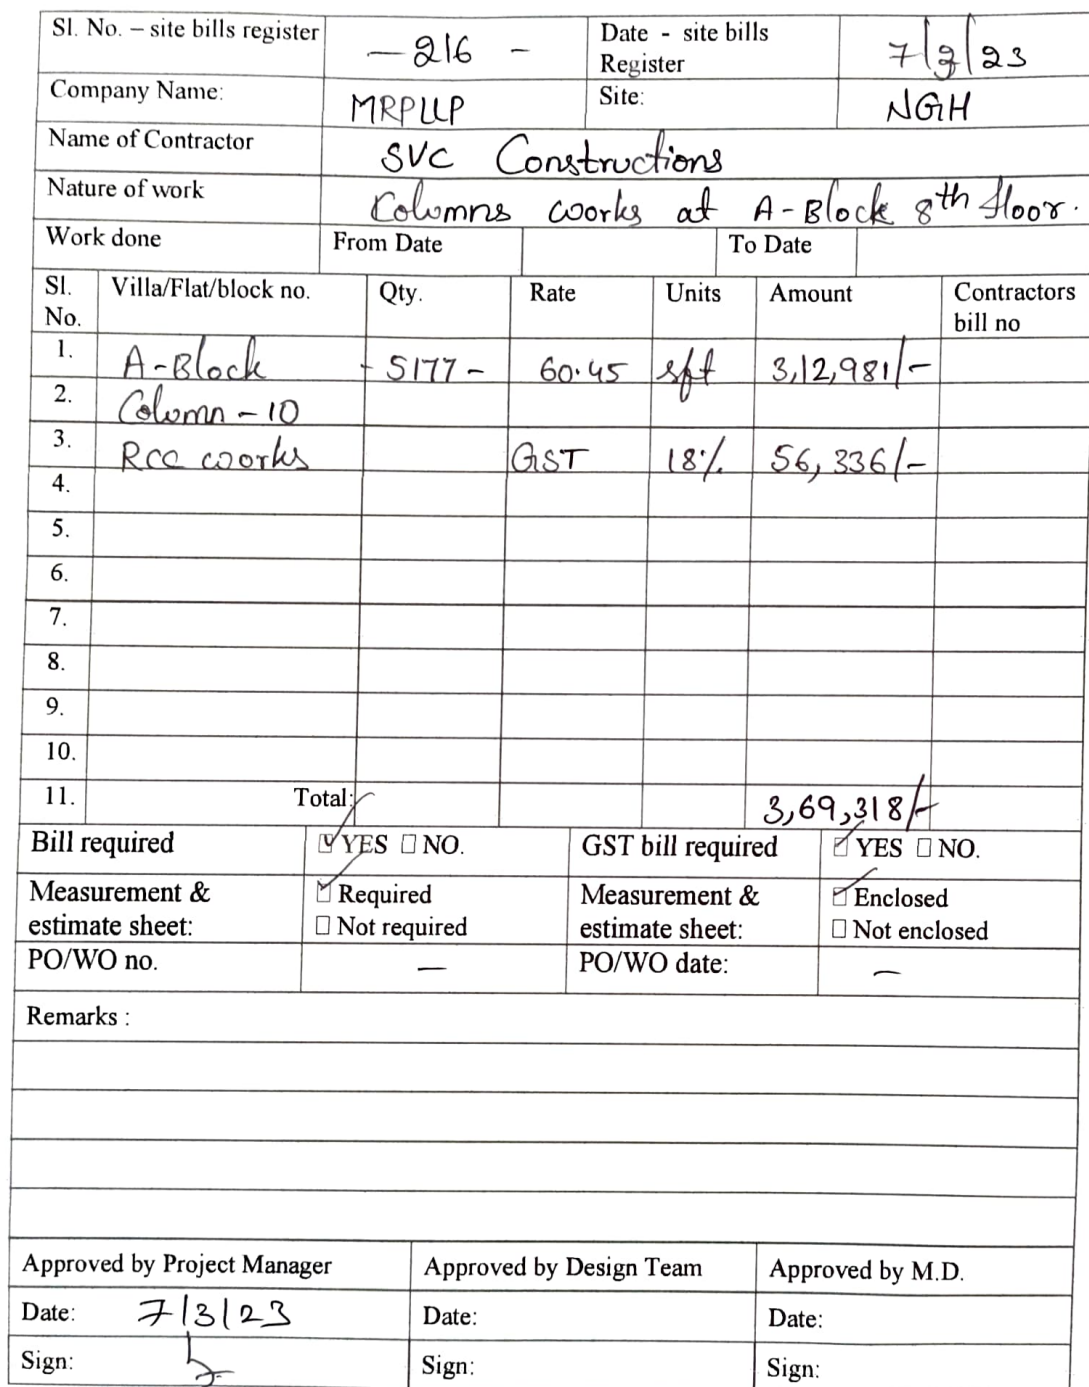 Sl. No. – site bills register — 216 - Date - site bills Register 7/3/23
Company Name: MRPLLP Site: NGH
Name of Contractor SVC Constructions
Nature of work Columns works at A-Block 8th floor.
Work done From Date To Date
Sl. No. Villa/Flat/block no. Qty. Rate Units Amount Contractors bill no
1. A-Block - 5177 - 60.45 sft 3,12,981/-
2. Column - 10
3. Rcc works GST 18% 56,336/-
4.
5.
6.
7.
8.
9.
10.
11. Total: 3,69,318/-
Bill required ☑ YES ☐ NO. GST bill required ☑ YES ☐ NO.
Measurement & estimate sheet: ☑ Required ☐ Not required Measurement & estimate sheet: ☑ Enclosed ☐ Not enclosed
PO/WO no. — PO/WO date: —
Remarks :
Approved by Project Manager Approved by Design Team Approved by M.D.
Date: 7/3/23 Date: Date:
Sign: Sign: Sign: